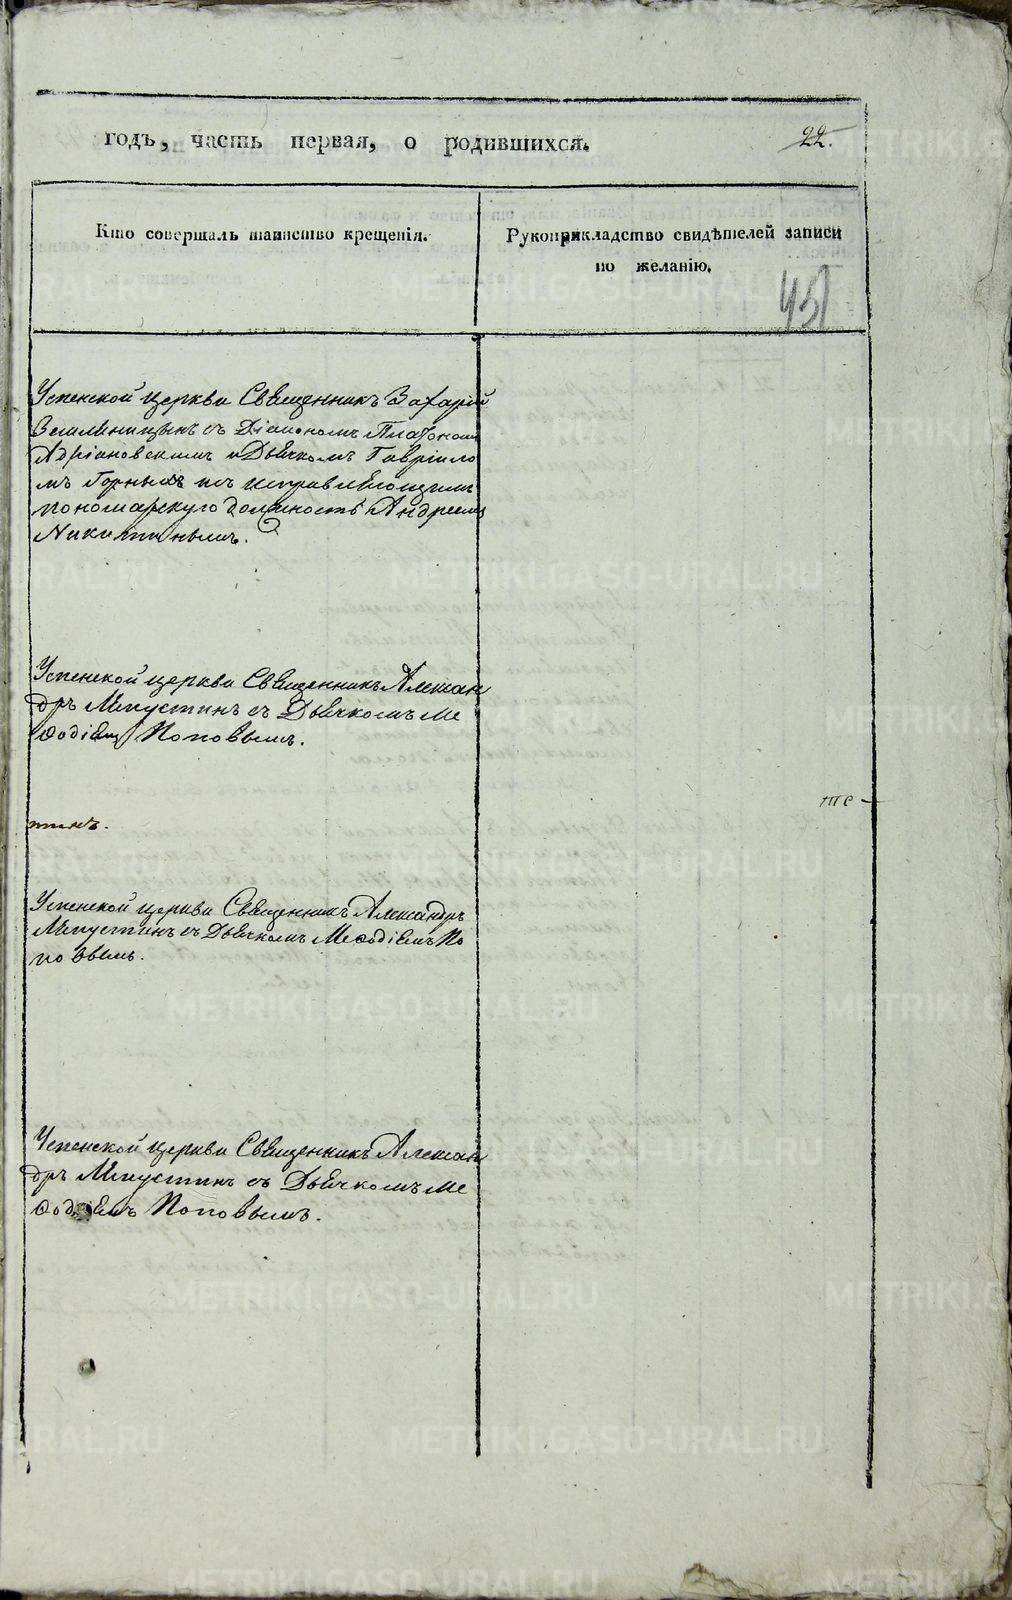 годъ, часть первая, о родившихся.
22.
Кто совершалъ таинство крещенія.
Рукоприкладство свидѣтелей записи
по желанію.
Успенской церкви Священникъ Захарій
съ Діакономъ Платономъ
Адріановскимъ и Дьячкомъ Гавріило
мъ Горныхъ
пономарскую должность Андреемъ
Никитинымъ.
Успенской церкви Священникъ Алексан
дръ Мипустинъ съ Дьячкомъ Ме
ѳодіемъ Поповымъ.
тинъ.
Успенской церкви Священникъ Александръ
Мипустинъ съ Дьячкомъ Меѳодіемъ По
повымъ.
Успенской церкви Священникъ Алексан
дръ Мипустинъ съ Дьячкомъ Ме
ѳодіемъ Поповымъ.
METRIKI.GASO-URAL.RU